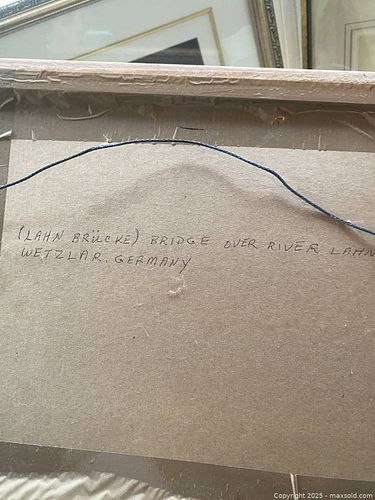 (LAHN BRÜCKE) BRIDGE OVER RIVER LAHN
WETZLAR. GERMANY
Copyright © 2025 - maxsold.com